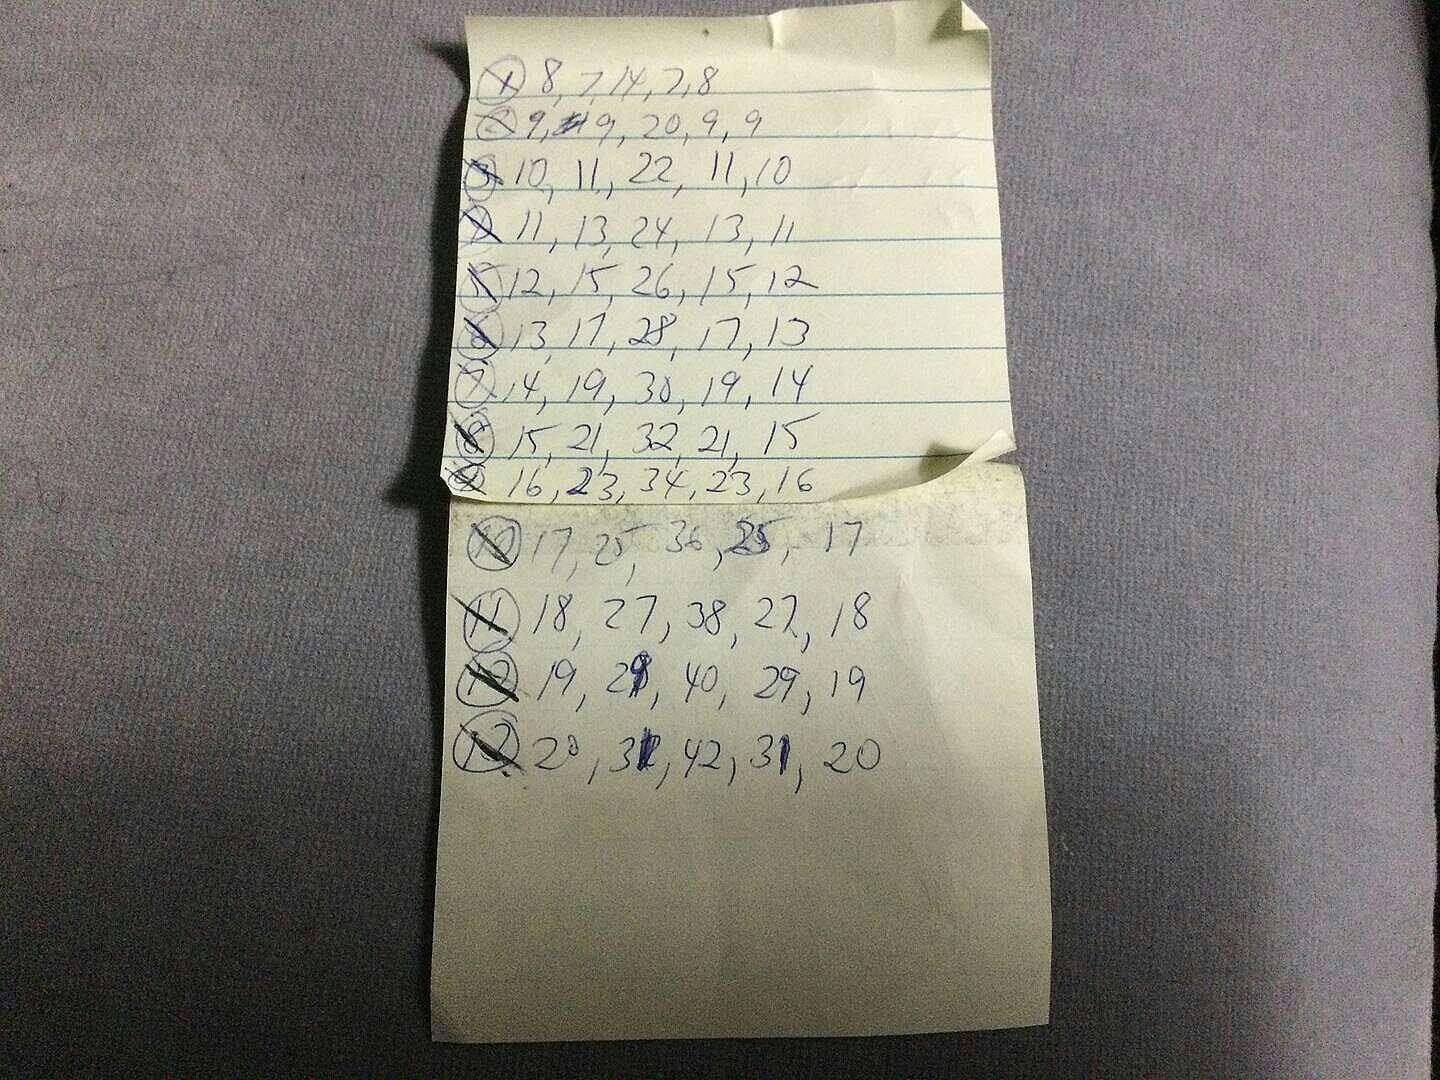 1 8, 7, 14, 7, 8
2 9, 9, 20, 9, 9
3 10, 11, 22, 11, 10
4 11, 13, 24, 13, 11
5 12, 15, 26, 15, 12
6 13, 17, 28, 17, 13
7 14, 19, 30, 19, 14
8 15, 21, 32, 21, 15
9 16, 23, 34, 23, 16
10 17, 25, 36, 25, 17
11 18, 27, 38, 27, 18
12 19, 29, 40, 29, 19
13 20, 31, 42, 31, 20